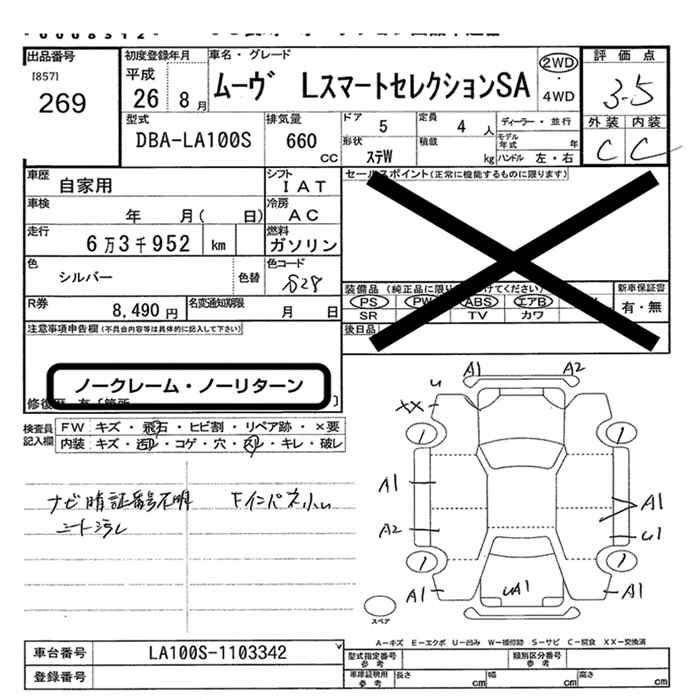 出品番号
[857]
269
初度登録年月
平成
26 8月
車名・グレード
ムーヴ LスマートセレクションSA
2WD
・
4WD
評価点
3.5
外装 内装
C C
型式
DBA-LA100S
排気量
660
cc
ドア 5
定員 4人
ディーラー・並行
モデル年式 年
形状 ステW
積載 kg
ハンドル 左・右
車歴 自家用
シフト IAT
車検 年 月( 日)
冷房 AC
走行 6万3千952 km
燃料 ガソリン
色 シルバー 色替
色コード S28
R券 8,490円
名変通知期限 月 日
セールスポイント(正常に機能するものに限ります)
新車保証書
有・無
PS PW ABS エアB
SR TV カワ
後日品
注意事項申告欄(不具合内容等は具体的に記入して下さい)
ノークレーム・ノーリターン
検査員記入欄
FW キズ・飛石・ヒビ割・リペア跡・×要
内装 キズ・汚れ・コゲ・穴・スレ・キレ・破レ
ナビ暗証番号不明
Fインパネ小い
A1 A2
U
XX
1 1
A1
A1
A2
U1
1 1
A1 UA1 A1
スペア
A-キズ E-エクボ U-凹み W-補修跡 S-サビ C-腐食 XX-交換済
車台番号 LA100S-1103342
登録番号
型式指定番号 参考
類別区分番号 参考
車庫証明用 参考 長さ cm 幅 cm 高さ cm